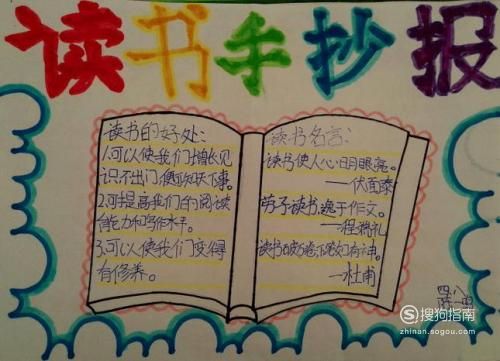 读书手抄报
读书的好处:
1.可以使我们增长见
识不出门,便知天下事。
2.可提高我们的阅读
能力和写作水平。
3.可以使我们变得
有修养。
读书名言:
读书使人心明眼亮。
——伏
劳于读书,逸于作文。
——程
读书破万卷,下笔如有神。
——杜甫
四、八
搜狗指南
zhinan.sogou.com